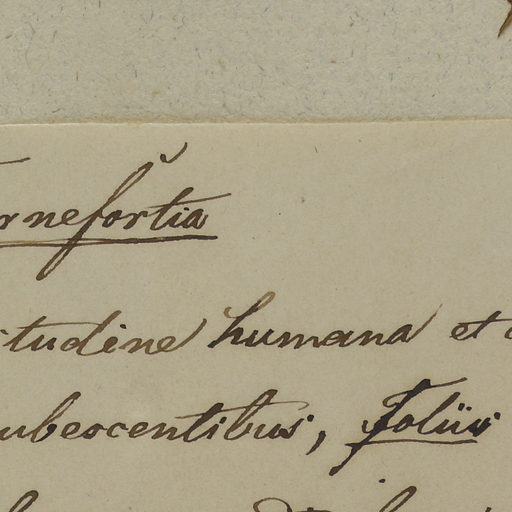 rnefortia
itudine humana et
ubescentibus, foliis